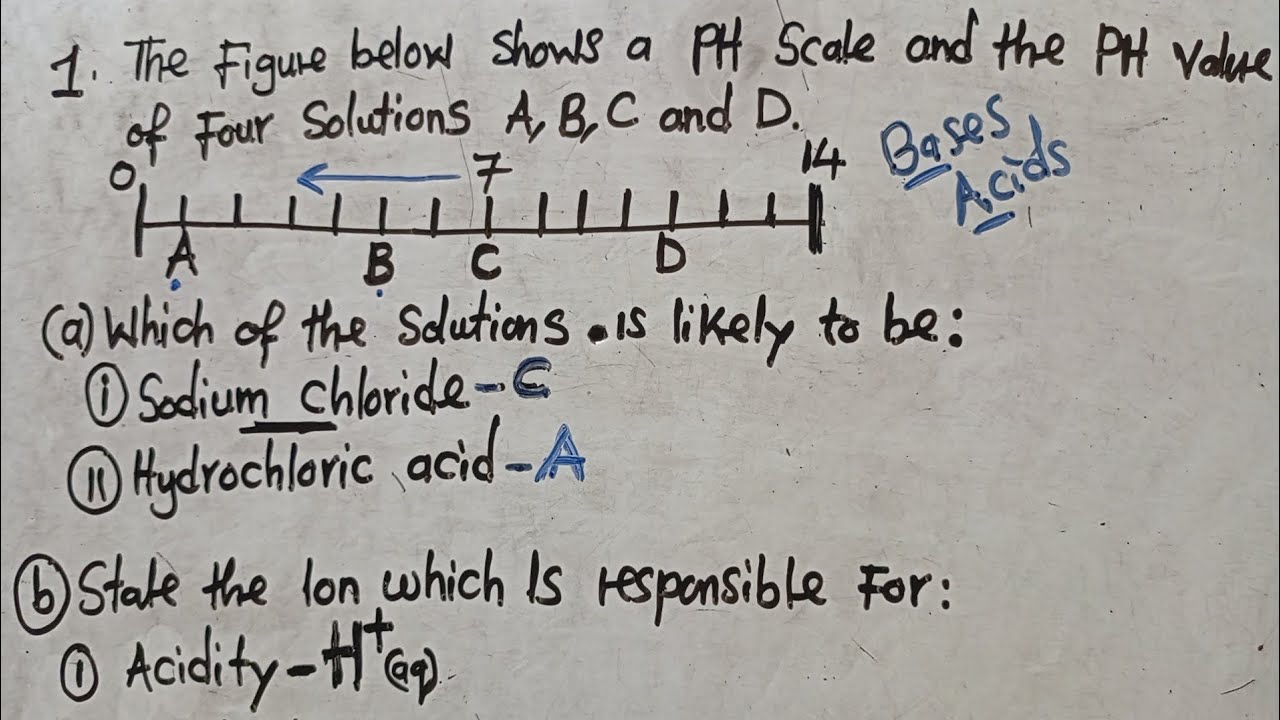 1. The Figure below shows a PH Scale and the PH Value
of Four Solutions A, B, C and D.
Bases
Acids
0 7 14
A B C D
(a) Which of the Solutions is likely to be:
(i) Sodium chloride - C
(ii) Hydrochloric acid - A
(b) State the Ion which Is responsible For:
(i) Acidity - H+(aq)